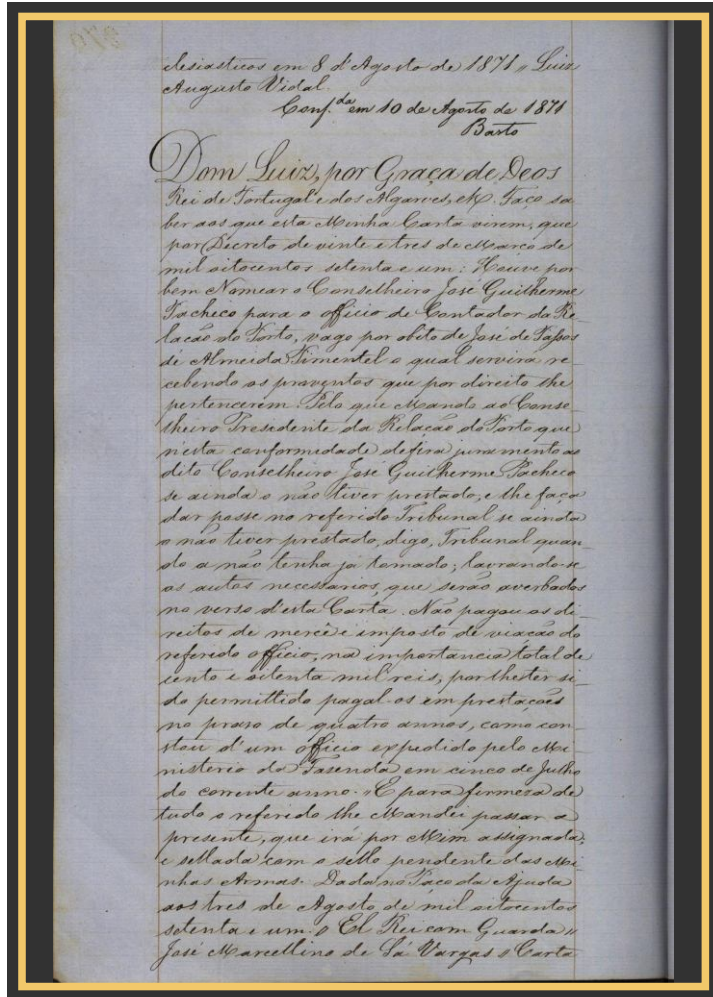 clesiasticos em 8 d'Agosto de 1871 " Luiz
Augusto Vidal.
Conf.da em 10 de Agosto de 1871
Basto
Dom Luiz, por Graça de Deos
Rei de Portugal e dos Algarves, etc. Faço sa
ber aos que esta Minha Carta virem, que
por Decreto de vinte e tres de Março de
mil oitocentos setenta e um: Houve por
bem Nomear o Conselheiro José Guilherme
Pacheco para o officio de Contador da Re-
lação do Porto, vago por obito de José de Passos
de Almeida Pimentel o qual servirá re-
cebendo os proventos que por direito lhe
pertencerem. Pelo que Mando ao Conse-
lheiro Presidente da Relação do Porto que
n'esta conformidade defira juramento ao
dito Conselheiro José Guilherme Pacheco
se ainda o não tiver prestado, e lhe faça
dar posse no referido Tribunal se ainda
o não tiver prestado, digo, Tribunal quan-
do a não tenha já tomado; lavrando-se
os autos necessarios, que serão averbados
no verso d'esta Carta. Não pagou os di-
reitos de mercê e imposto de viação do
referido officio, na importancia total de
cento e oitenta mil reis, por lhe ter si-
do permittido pagal-os em prestações
no praso de quatro annos, como con-
stou d'um officio expedido pelo Mi-
nisterio da Fasenda em cinco de Julho
do corrente anno. "E para firmesa de
tudo o referido lhe Mandei passar a
presente, que irá por Mim assignada,
e sellada com o sello pendente das Mi-
nhas Armas. Dada no Paço da Ajuda
aos tres de Agosto de mil oitocentos
setenta e um. " El Rei com Guarda "
José Marcellino de Sá Vargas " Carta